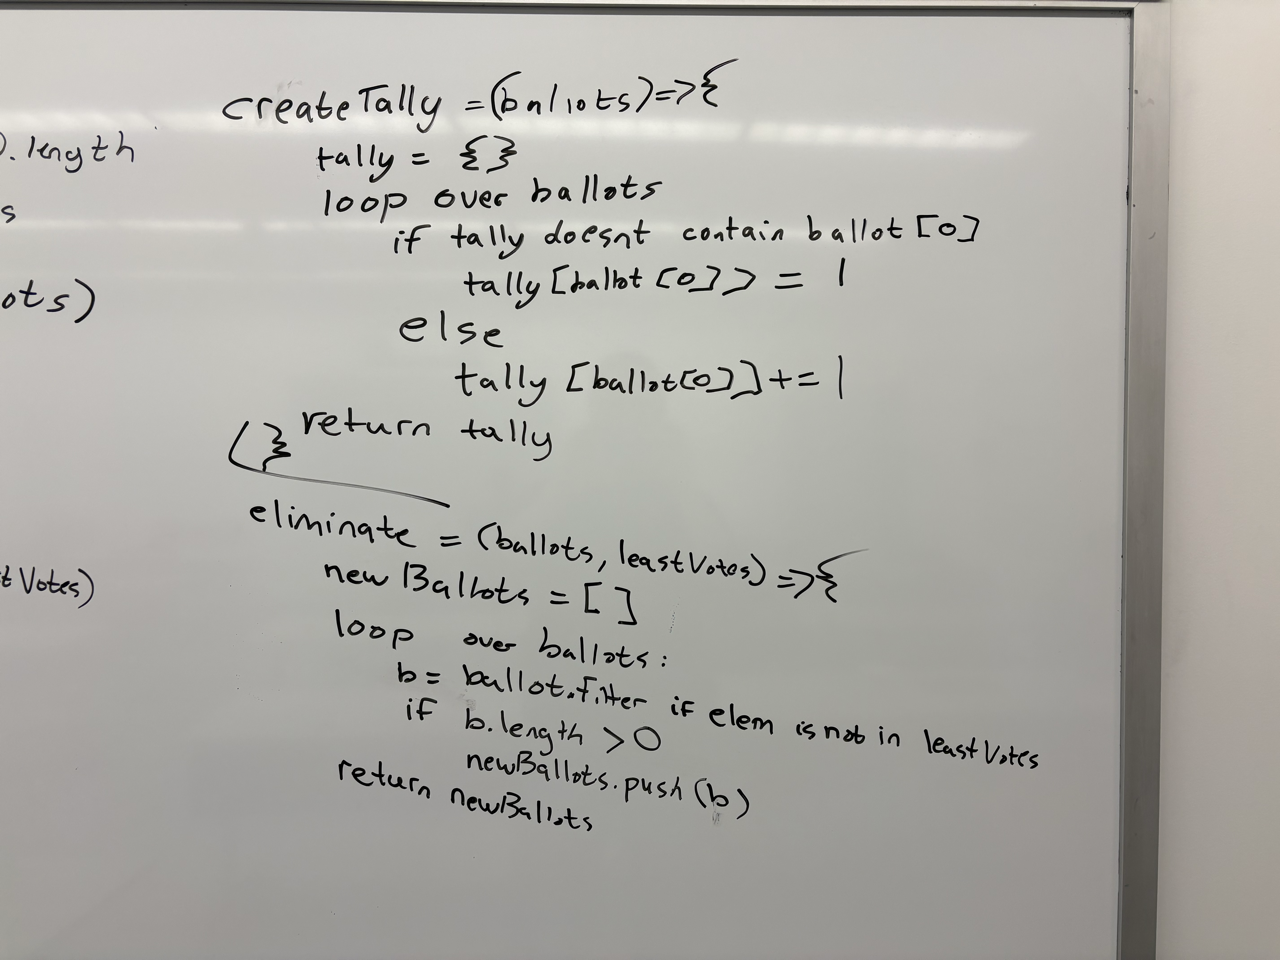 createTally = (ballots) => {
tally = {}
loop over ballots
if tally doesnt contain ballot [0]
tally [ballot [0]] = 1
else
tally [ballot[0]] += 1
return tally
}
eliminate = (ballots, leastVotes) => {
newBallots = []
loop over ballots:
b = ballot.filter if elem is not in leastVotes
if b.length > 0
newBallots.push (b)
return newBallots
).length
s
ots)
t Votes)